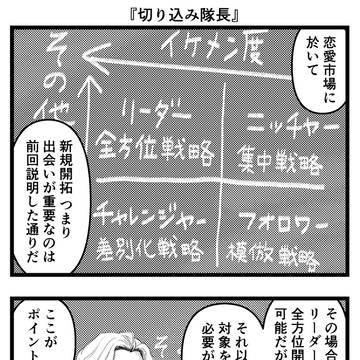 『切り込み隊長』
恋愛市場に
於いて
イケメン度
その他
リーダー
全方位戦略
ニッチャー
集中戦略
チャレンジャー
差別化戦略
フォロワー
模倣戦略
新規開拓つまり
出会いが重要なのは
前回説明した通りだ
その場合
リーダー
全方位開
可能だが
それ以
対象を
必要が
ここが
ポイント